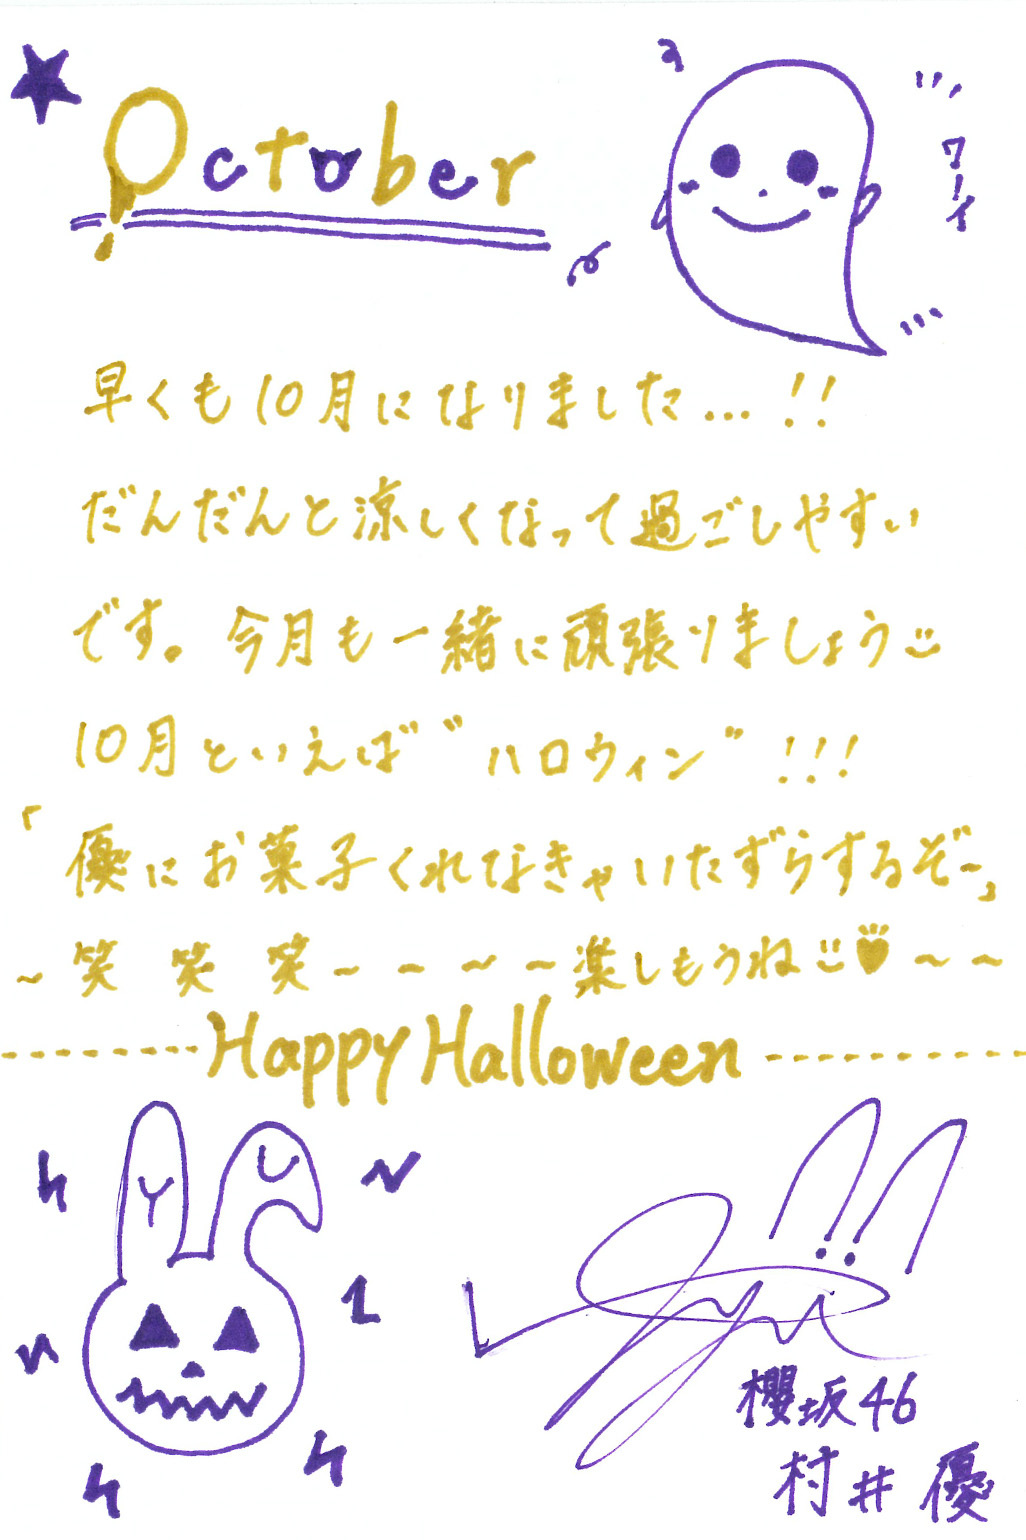 October
ワーイ
早くも10月になりました…!!
だんだんと涼しくなって過ごしやすい
です。今月も一緒に頑張りましょう
10月といえば"ハロウィン"!!!
「優にお菓子くれなきゃいたずらするぞ~」
~笑 笑 笑~~~~楽しもうね~~
Happy Halloween
Y U
櫻坂46
村井 優